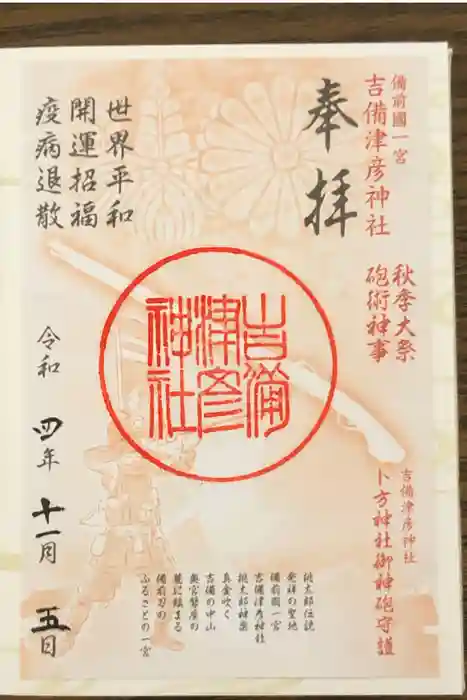 備前國一宮
吉備津彦神社
秋季大祭
砲術神事
吉備津彦神社
卜方神社御神砲守護
奉拝
吉備
津彦
神社
世界平和
開運招福
疫病退散
令和四年十一月五日
桃太郎伝説
発祥の聖地
備前國一宮
吉備津彦神社
桃太郎神楽
真金吹く
吉備の中山
奥宮磐座の
麓に鎮まる
備前刀の
ふるさとの一宮